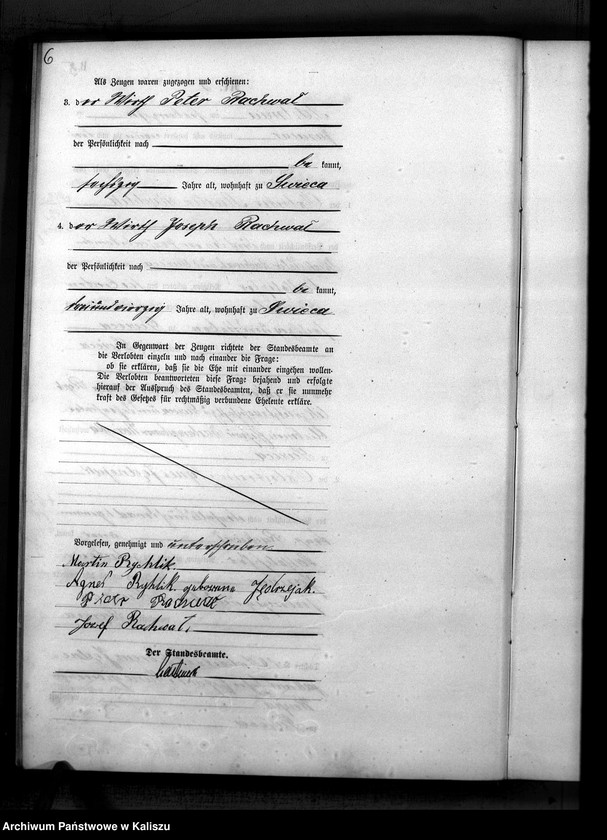 6
Als Zeugen waren zugezogen und erschienen:
3. der Wirth Peter Rachwał
der Persönlichkeit nach
be kannt,
sechszig Jahre alt, wohnhaft zu Swieca
4. der Wirth Joseph Rachwał
der Persönlichkeit nach
be kannt,
dreiundvierzig Jahre alt, wohnhaft zu Swieca
In Gegenwart der Zeugen richtete der Standesbeamte an
die Verlobten einzeln und nach einander die Frage:
ob sie erklären, daß sie die Ehe mit einander eingehen wollen.
Die Verlobten beantworteten diese Frage bejahend und erfolgte
hierauf der Ausspruch des Standesbeamten, daß er sie nunmehr
kraft des Gesetzes für rechtmäßig verbundene Eheleute erkläre.
Vorgelesen, genehmigt und unterschrieben
Martin Rychlik.
Agnes Ryhlik geborene Jędrzejak.
Piotr Rachwał
Jozef Rachwał.
Der Standesbeamte.
Archiwum Państwowe w Kaliszu